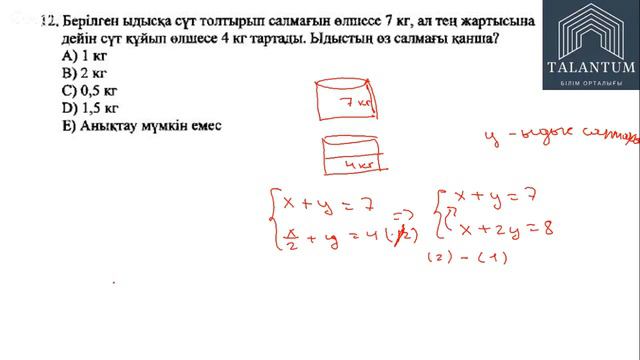 12. Берілген ыдысқа сүт толтырып салмағын өлшесе 7 кг, ал тең жартысына
дейін сүт құйып өлшесе 4 кг тартады. Ыдыстың өз салмағы қанша?
A) 1 кг
B) 2 кг
C) 0,5 кг
D) 1,5 кг
E) Анықтау мүмкін емес
TALANTUM
БІЛІМ ОРТАЛЫҒЫ
7 кг
4 кг
y - ыдыс
x + y = 7 => x + y = 7
x/2 + y = 4 (·2) x + 2y = 8
(2) - (1)